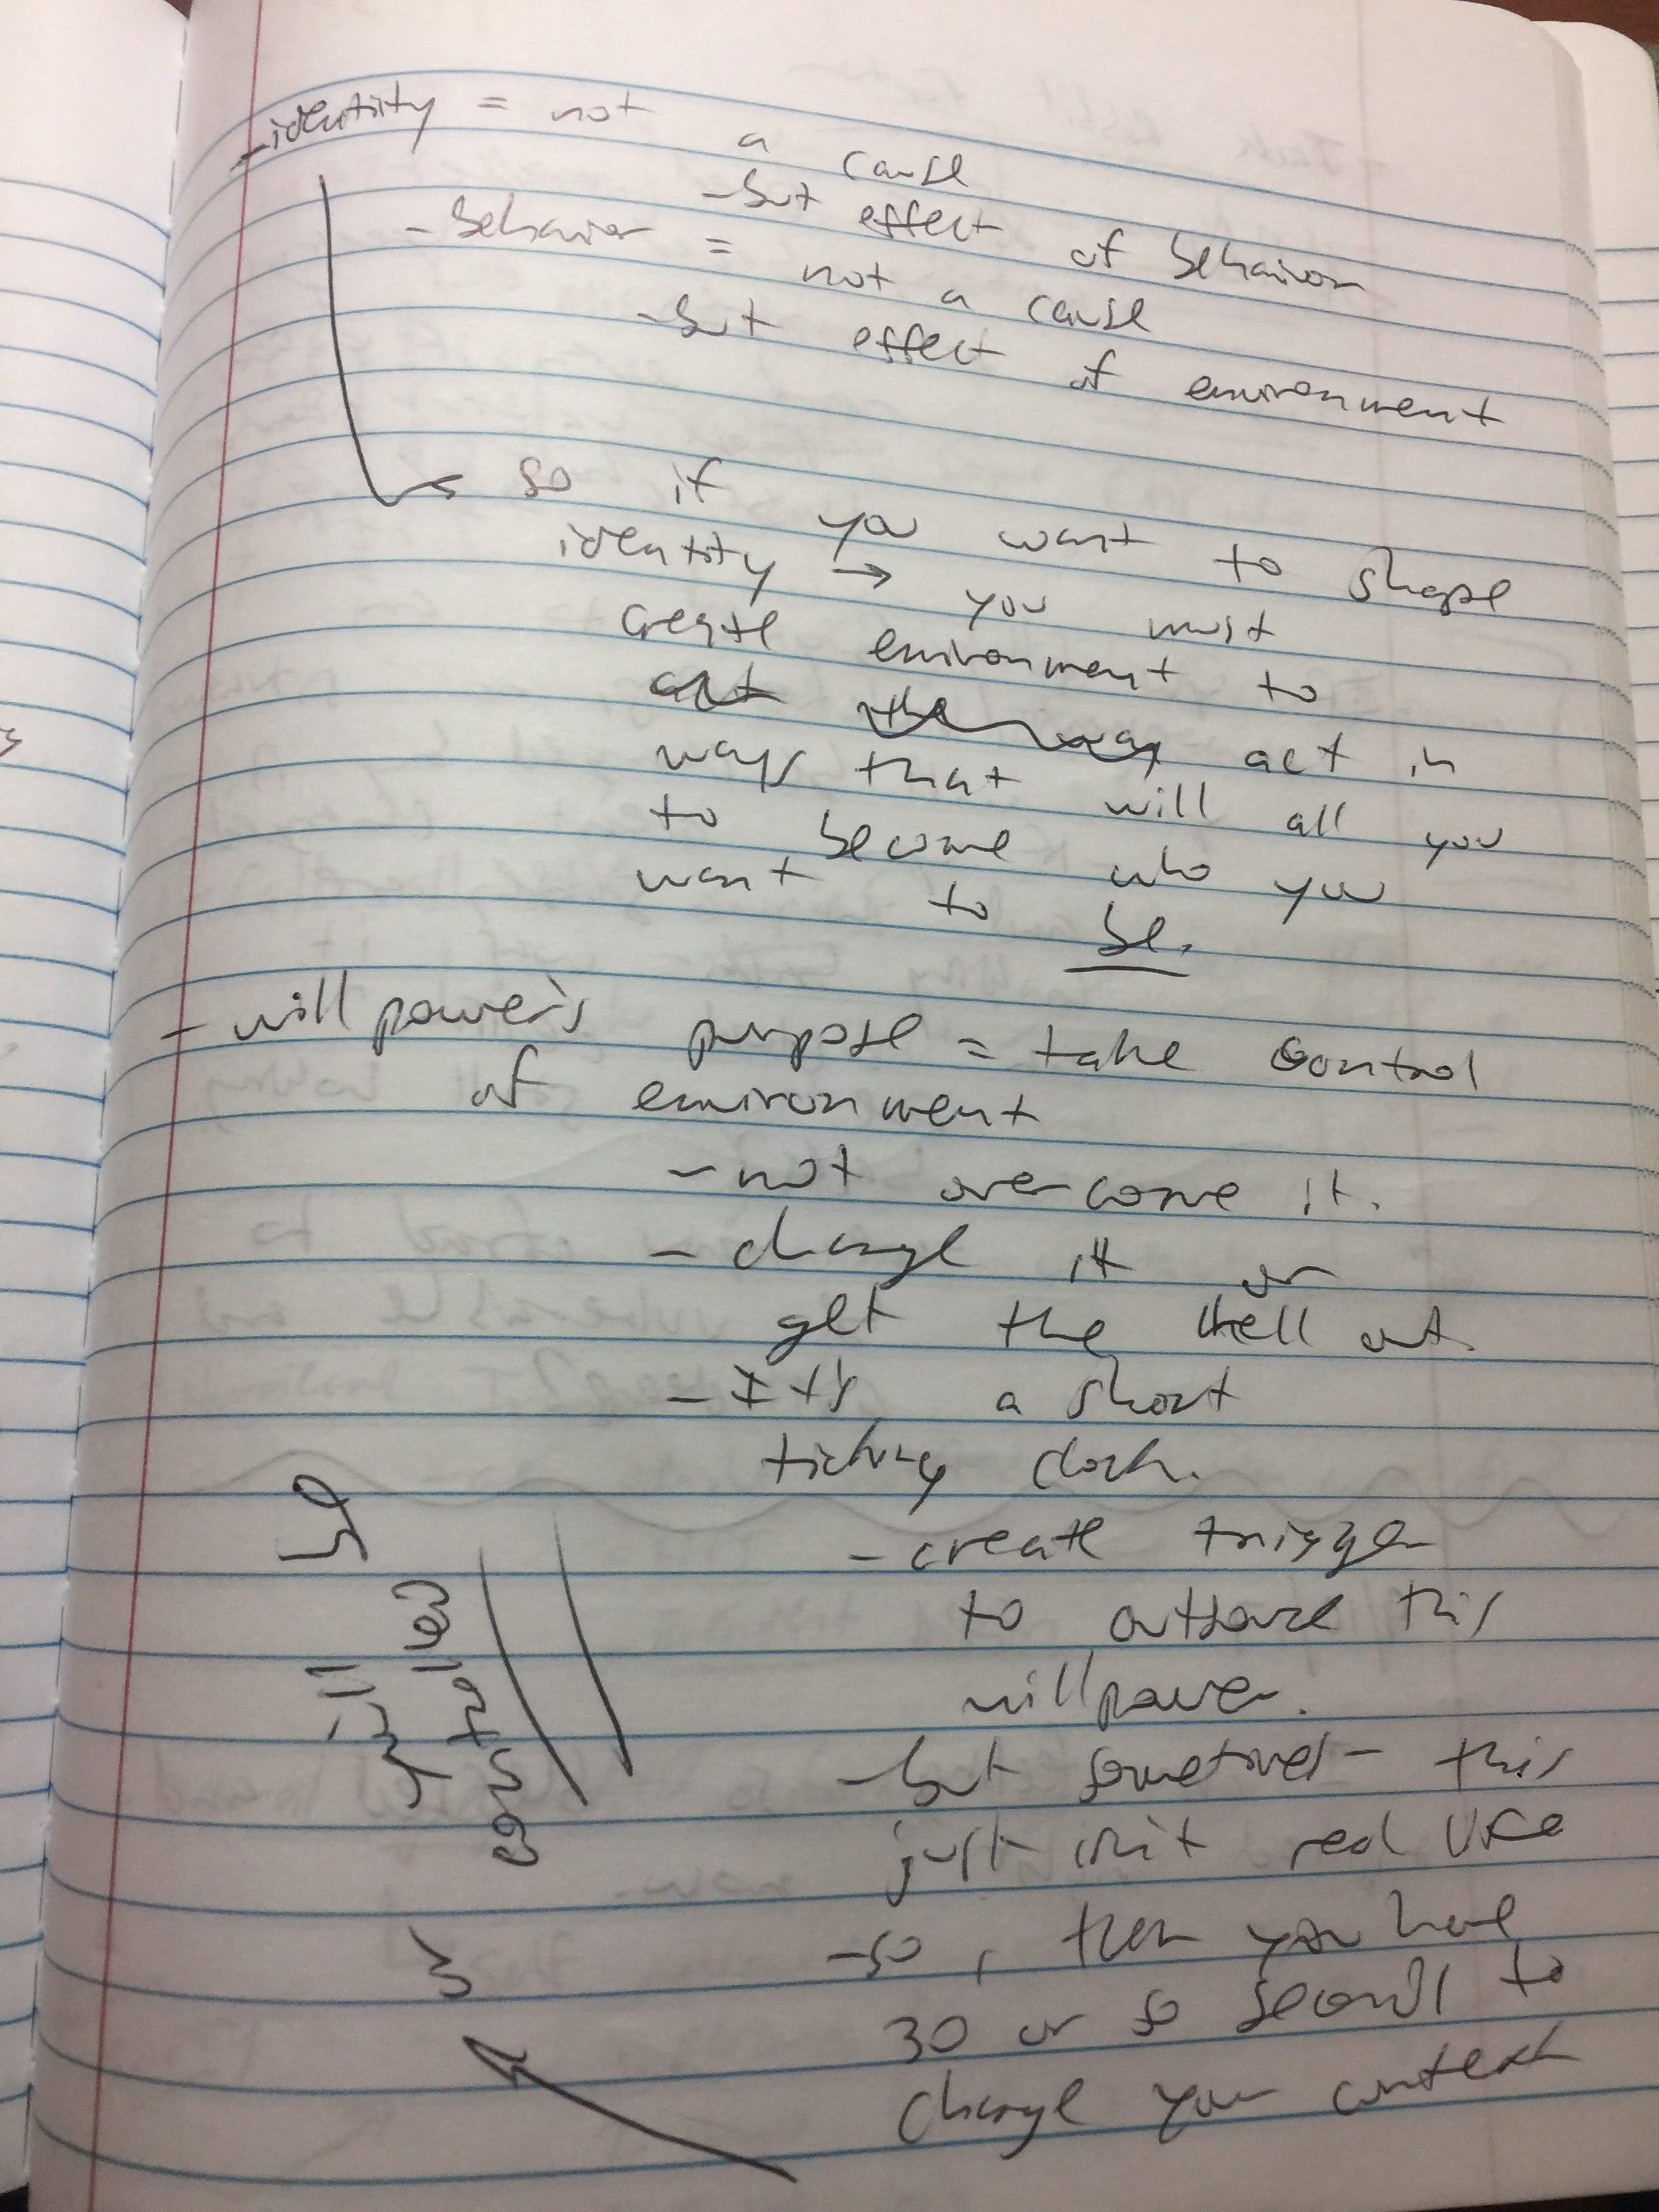 - identity = not a cause
- but effect of behavior
- behavior = not a cause
- but effect of environment
so if you want to shape
identity → you must
create environment to
act the way act in
ways that will all you
to become who you
want to be.
- willpower's purpose = take control
of environment
- not overcome it.
- change it or
get the hell out.
- It's a short
ticking clock.
- create trigger
to outsource this
willpower.
- but sometimes - this
just isn't realistic
- so, then you have
30 or so seconds to
change your context
or
you'll be
controlled